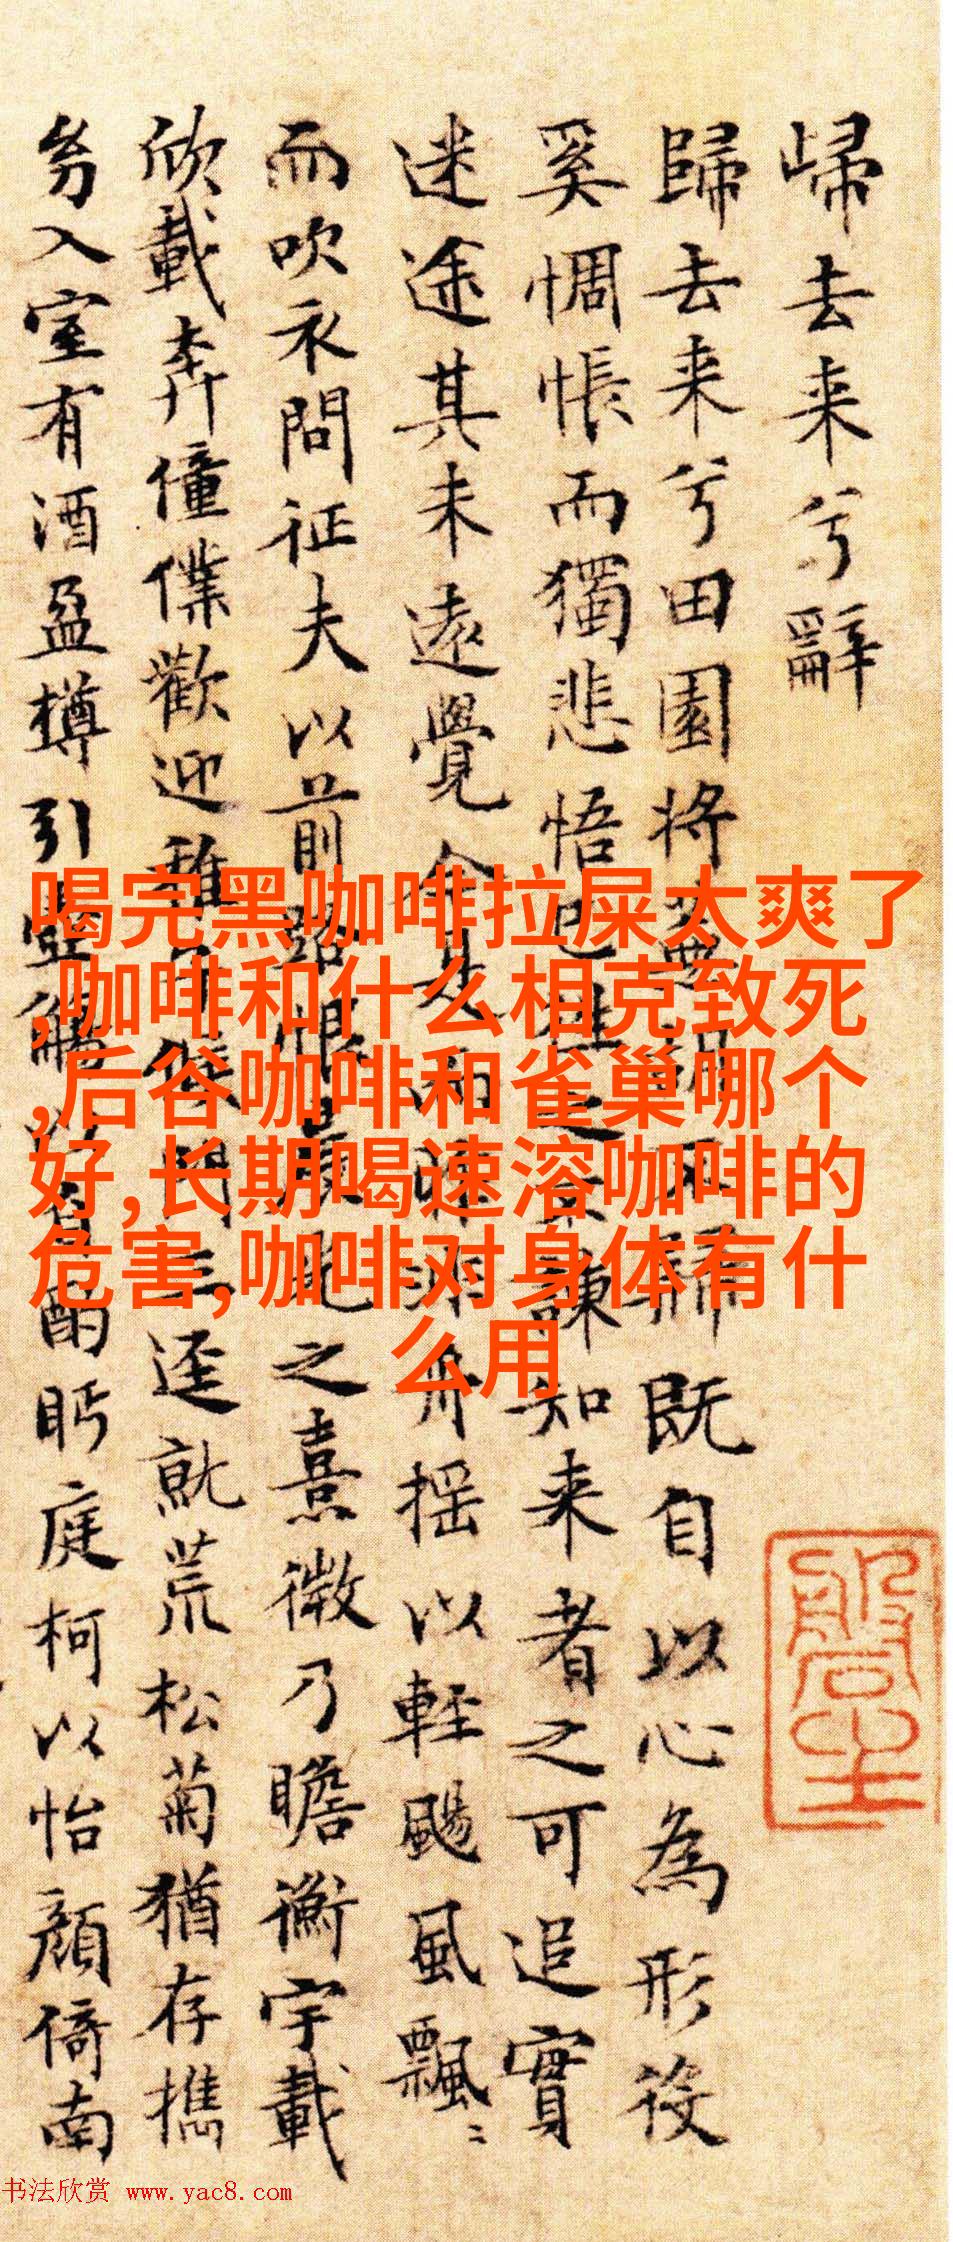 歸去来兮辭
歸去来兮田園将蕪胡不歸既自以心為形役
奚惆悵而獨悲悟已往之不諫知来者之可追實
迷途其未遠覺今是而昨非舟揺以軽颺風飄〻
而吹衣問征夫以前路恨晨光之熹微乃瞻衡宇載
欣載奔僮僕歡迎稚子候門三逕就荒松菊猶存携
㓜入室有酒盈樽引壺觴以自酌眄庭柯以怡顔倚南
喝完黑咖啡拉屎太爽了
,咖啡和什么相克致死
,后谷咖啡和雀巢哪个
好,长期喝速溶咖啡的
危害,咖啡对身体有什
么用
书法欣赏 www.yac8.com